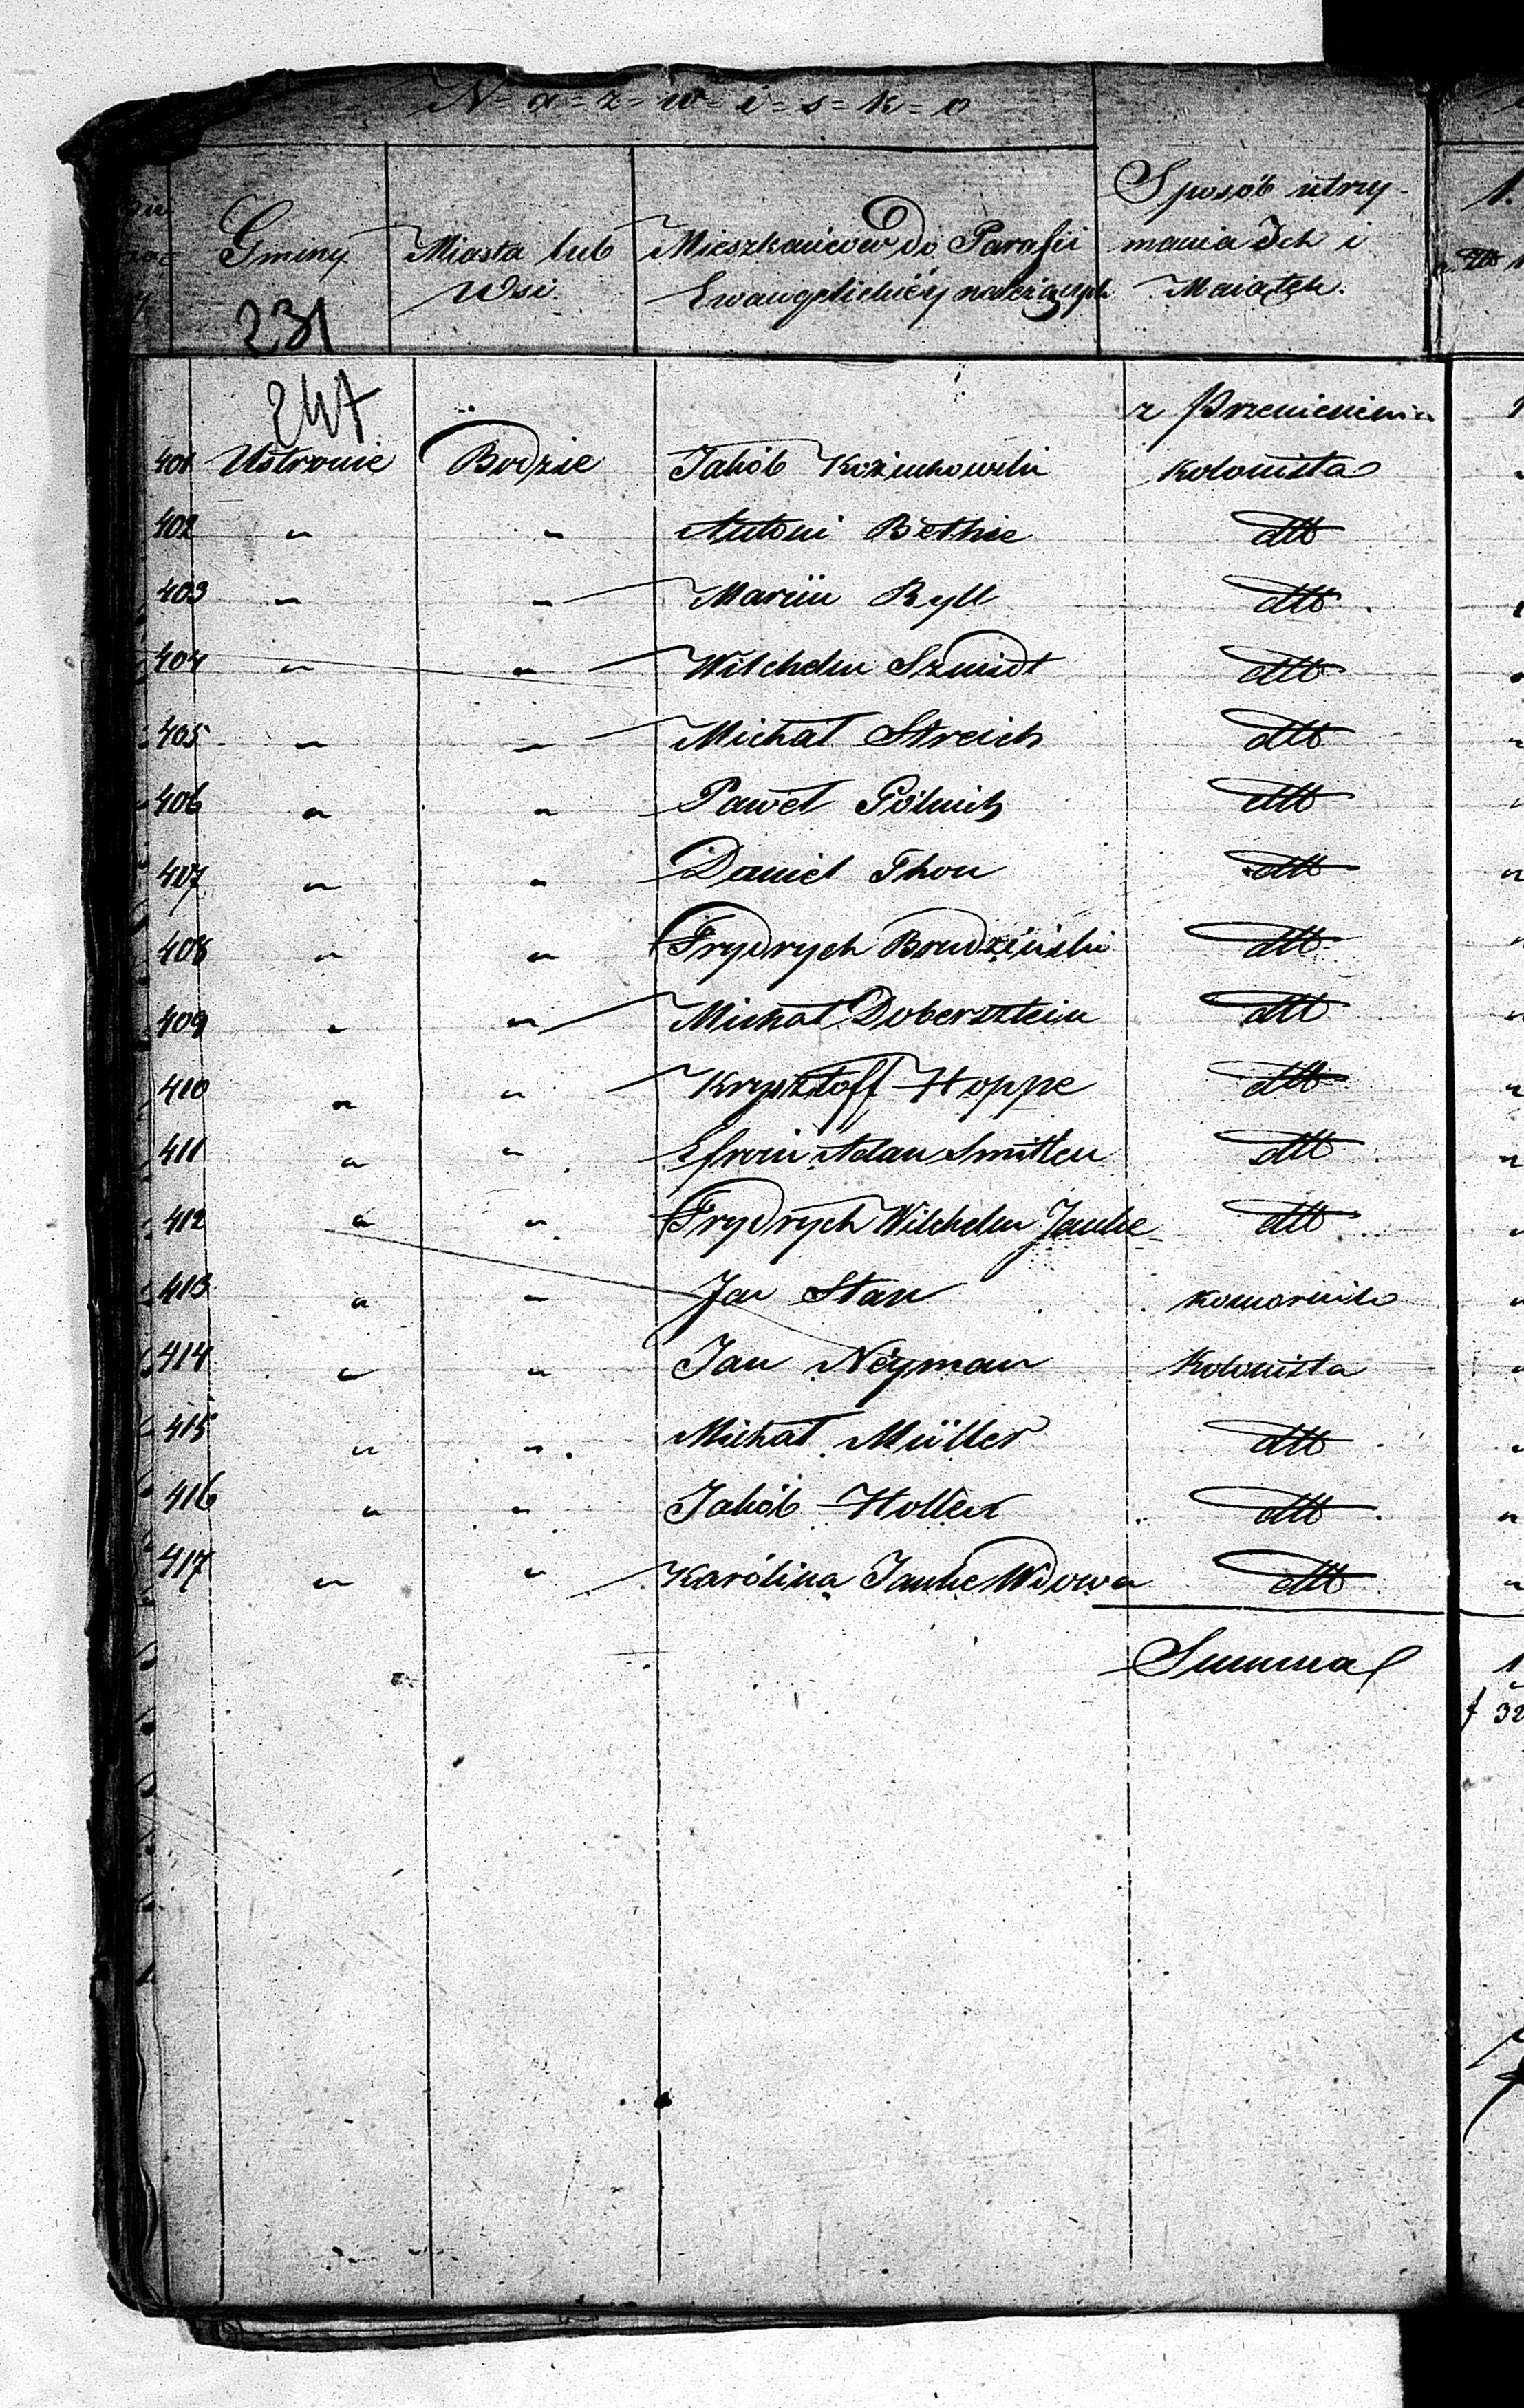 N=a=z=w=i=s=k=o
Gminy Miasta lub Wsi. Mieszkańców do Parafii Ewangelickiéy należących Sposób utrzymania Ich i Maiątek.
231
247
z Przeniesienia
401 Ustronie Bodzie Jakób Kozinkowski Kolonista
402 " " Antoni Bethke dtto
403 " " Marcin Ryll dtto
404 " " Wilchelm Szmidt dtto
405 " " Michał Streich dtto
406 " " Paweł Gölnitz dtto
407 " " Daniel Thon dtto
408 " " Frydrych Brudziński dtto
409 " " Michał Dobersztein dtto
410 " " Krysztoff Hoppe dtto
411 " " Adan Smitten dtto
412 " " Frydrych Wilchelm Janke dtto
413 " " Jan Stan komornik
414 " " Jan Neyman Kolonista
415 " " Michał Müller dtto
416 " " Jakób Holler dtto
417 " " Karólina Janke Wdowa dtto
Summa